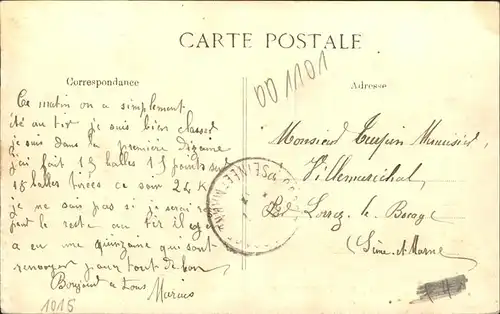 CARTE POSTALE
Correspondance
Adresse
001101
Ce matin on a simplement
été au tir je suis bien classé
je suis dans la première dizaine
j'ai fait 13 balles 15 points sur
18 balles tirées ce soir 24 K
je ne sais pas si je serai
pour le reste au tir il y en
a en une quinzaine qui sont
renvoyer pour tout de bon
Bonjour a tous
Marius
1015
Monsieur Turpin Menuisier
à Villemaréchal
Par Lorrez le Bocage
(Seine et Marne)
SEINE-ET-MARNE